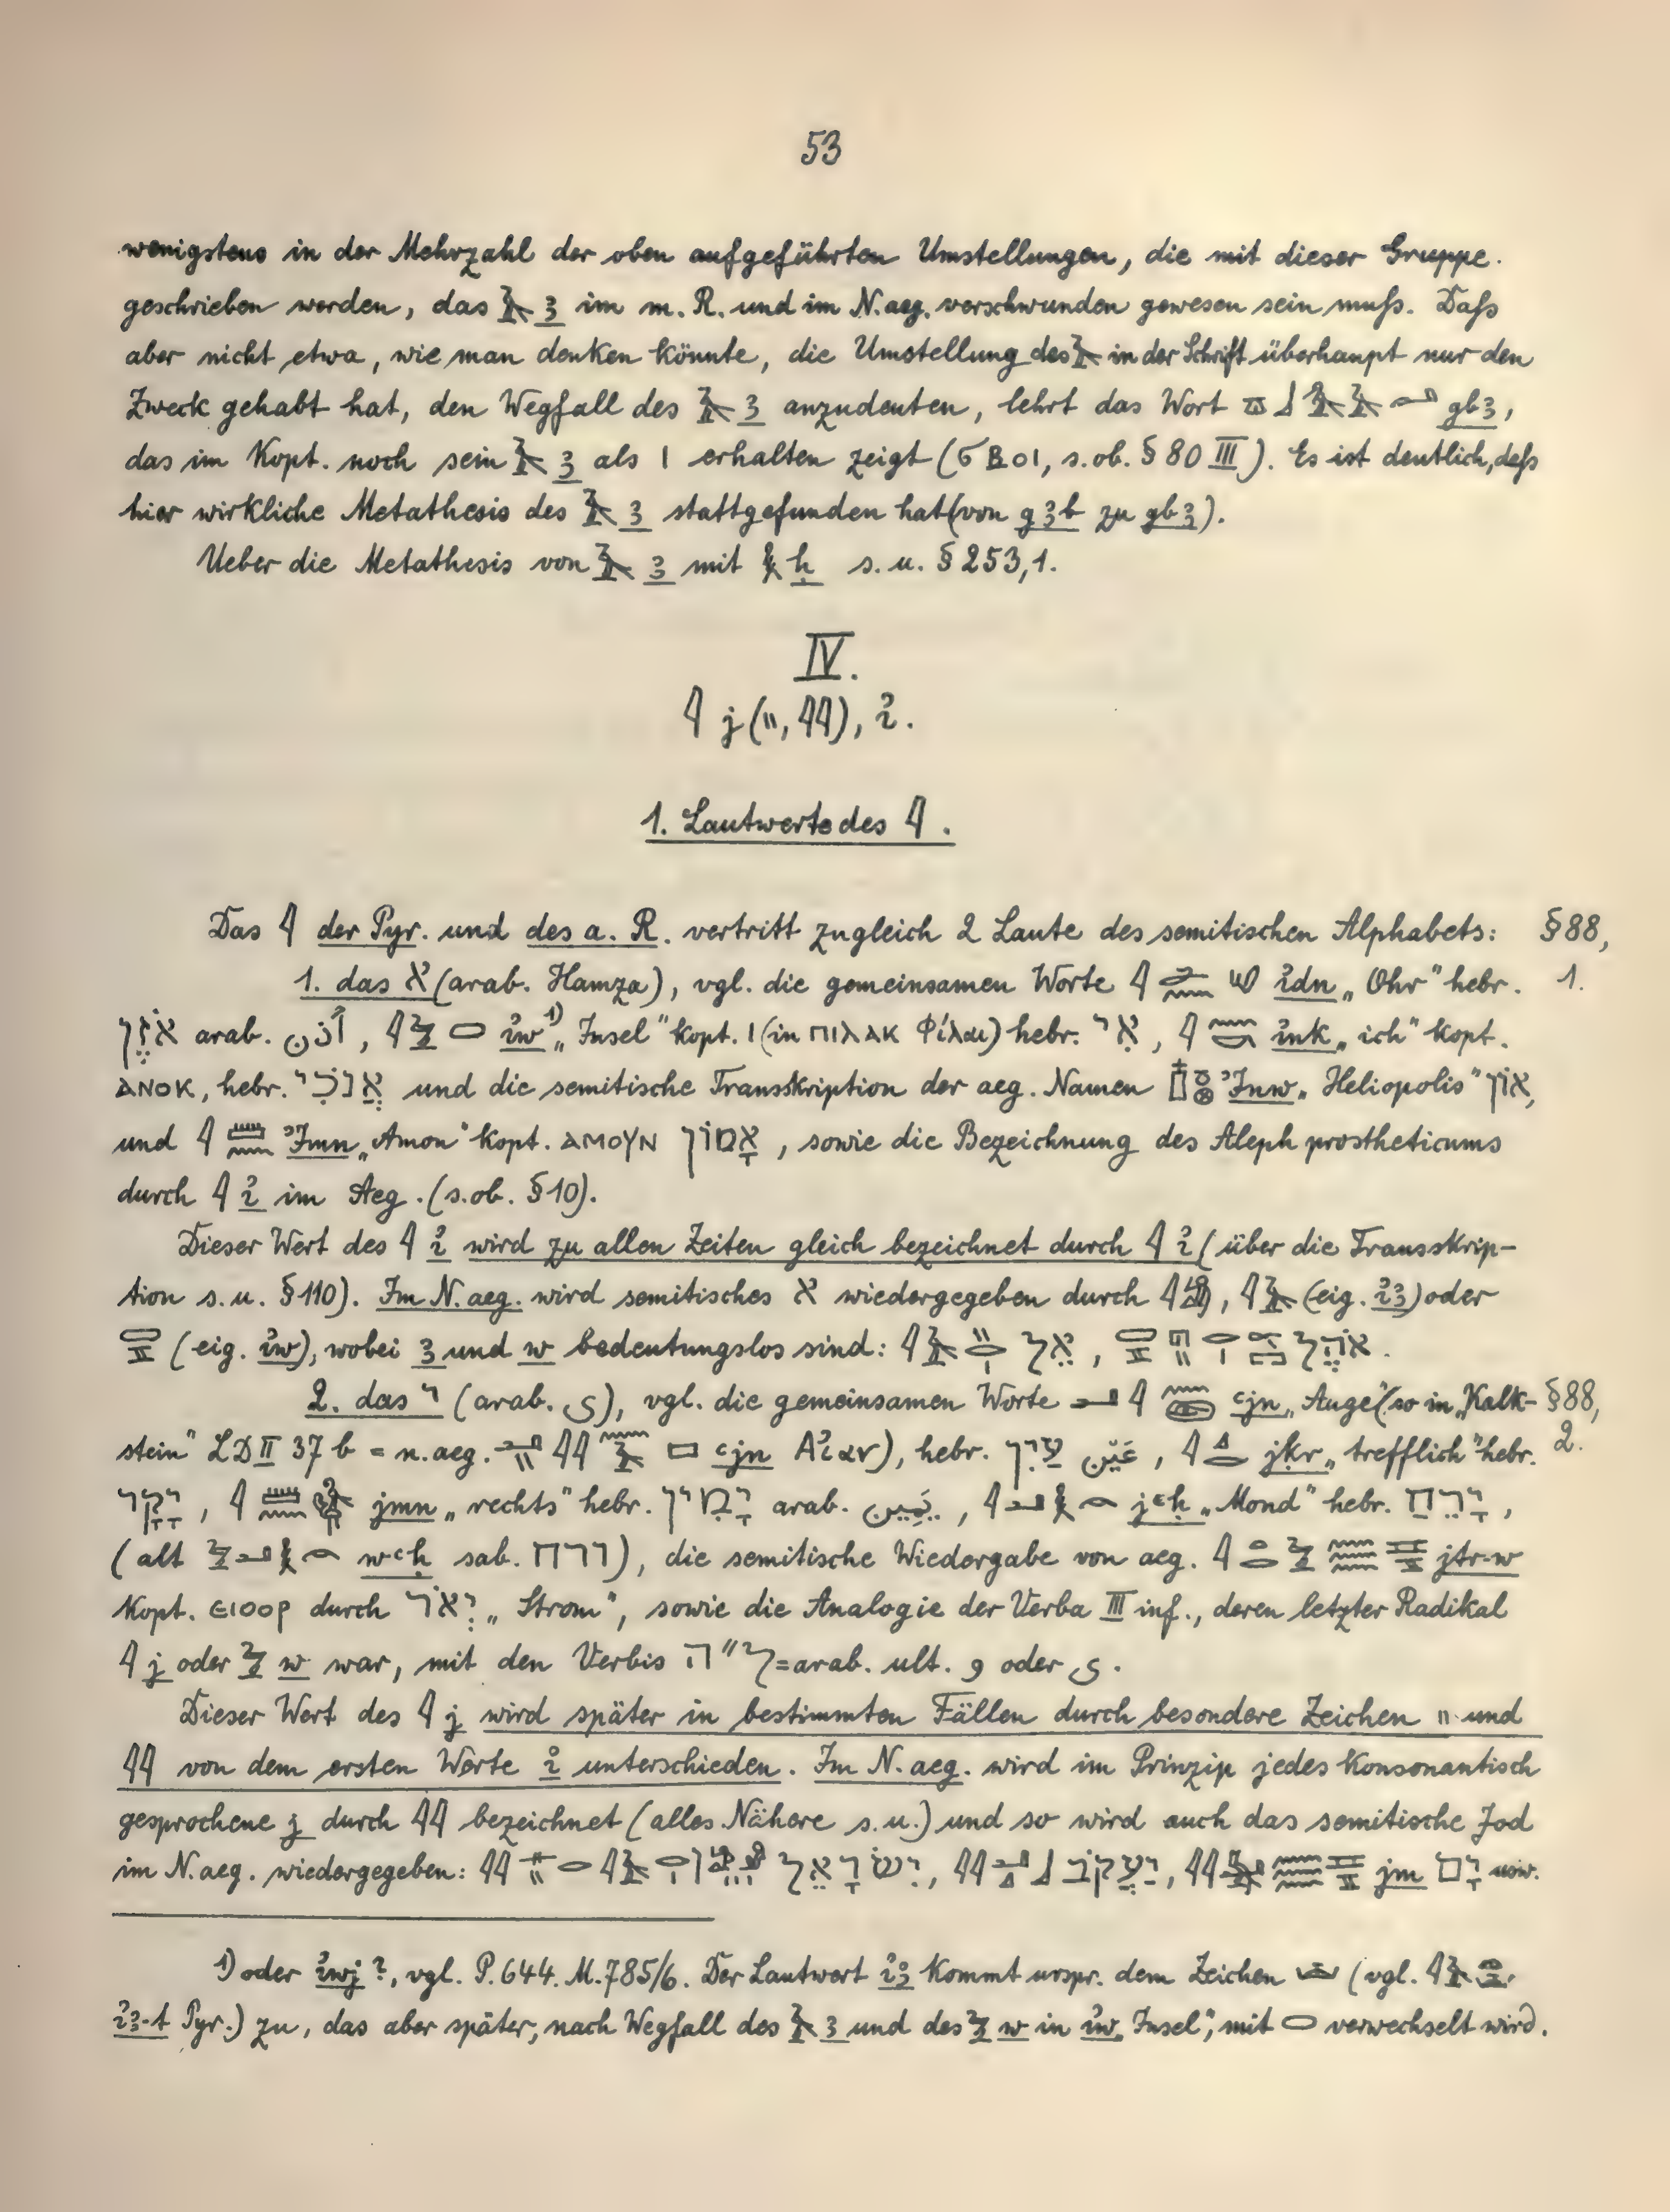 53
wenigstens in der Mehrzahl der oben aufgeführten Umstellungen, die mit dieser Gruppe
geschrieben werden, das 𓄿 ꜣ im m. R. und im N.aeg. verschwunden gewesen sein muſs. Daſs
aber nicht etwa, wie man denken könnte, die Umstellung des 𓄿 in der Schrift überhaupt nur den
Zweck gehabt hat, den Wegfall des 𓄿 ꜣ anzudeuten, lehrt das Wort 𓎼𓃀𓄿𓄿𓂝 gbꜣ,
das im Kopt. noch sein 𓄿 ꜣ als ⲓ erhalten zeigt (ϭⲃⲟⲓ, s.ob. § 80 III). Es ist deutlich, daſs
hier wirkliche Metathesis des 𓄿 ꜣ stattgefunden hat (von gꜣb zu gbꜣ).
Ueber die Metathesis von 𓄿 ꜣ mit 𓎛 ḥ s. u. § 253,1.
IV.
𓇋 j (𓏭, 𓇌), ꞽ.
1. Lautwerte des 𓇋.
Das 𓇋 der Pyr. und des a. R. vertritt zugleich 2 Laute des semitischen Alphabets: § 88,
1. das א (arab. Hamza), vgl. die gemeinsamen Worte 𓇋 𓂧𓈖 𓄹 ꞽdn „Ohr" hebr. 1.
אֹזֶן arab. أذن, 𓇋𓅱 𓈅 ꞽw 1) „Insel" kopt. ⲓ (in ⲡⲓⲗⲁⲕ Φίλαι) hebr. אִי, 𓇋 𓈖𓎡 ꞽnk „ich" kopt.
ⲁⲛⲟⲕ, hebr. אֲנֹכִי und die semitische Transskription der aeg. Namen 𓉺𓏌𓊖 ꞽnw „Heliopolis" אוֹן,
und 𓇋 𓏠𓈖 ꞽmn „Amon" kopt. ⲁⲙⲟⲩⲛ אָמוֹן, sowie die Bezeichnung des Aleph prostheticums
durch 𓇋 ꞽ im Aeg. (s.ob. §10).
Dieser Wert des 𓇋 ꞽ wird zu allen Zeiten gleich bezeichnet durch 𓇋 ꞽ (über die Transskrip-
tion s. u. §110). Im N.aeg. wird semitisches א wiedergegeben durch 𓇋𓀁, 𓇋𓄿 (eig. ꞽꜣ) oder
(eig. ꞽw), wobei ꜣ und w bedeutungslos sind: אֵל, אֹהֶל.
2. das י (arab. ي), vgl. die gemeinsamen Worte 𓂝 𓇋 𓈖 ꜥjn „Auge" (so in „Kalk- §88,
stein" LD II 37 b = n.aeg. ꜥjn Αἰαν), hebr. עַיִן عَيْن, 𓇋 𓈎𓂋 jḳr „trefflich" hebr. 2.
יָקָר, 𓇋 𓏠𓈖 jmn „rechts" hebr. יָמִין arab. يَمين, 𓇋𓂝𓎛 jꜥḥ „Mond" hebr. יָרֵחַ,
(alt 𓅱𓂝𓎛 wꜥḥ sab. ורח), die semitische Wiedergabe von aeg. 𓇋𓏏𓂋𓅱𓈗𓈇 jtr-w
kopt. ⲉⲓⲟⲟⲣ durch יְאֹר „Strom", sowie die Analogie der Verba III inf., deren letzter Radikal
𓇋 j oder 𓅱 w war, mit den Verbis ל״ה = arab. ult. و oder ي.
Dieser Wert des 𓇋 j wird später in bestimmten Fällen durch besondere Zeichen 𓏭 und
𓇌 von dem ersten Werte ꞽ unterschieden. Im N.aeg. wird im Prinzip jedes konsonantisch
gesprochene j durch 𓇌 bezeichnet (alles Nähere s.u.) und so wird auch das semitische Jod
im N.aeg. wiedergegeben: יִשְׂרָאֵל, יַעֲקֹב, jm יָם usw.
1) oder ꞽwj?, vgl. P. 644. M. 785/6. Der Lautwert ꞽꜣ kommt urspr. dem Zeichen (vgl.
ꞽꜣ-t Pyr.) zu, das aber später, nach Wegfall des 𓄿 ꜣ und des 𓅱 w in ꞽw „Insel", mit 𓈅 verwechselt wird.